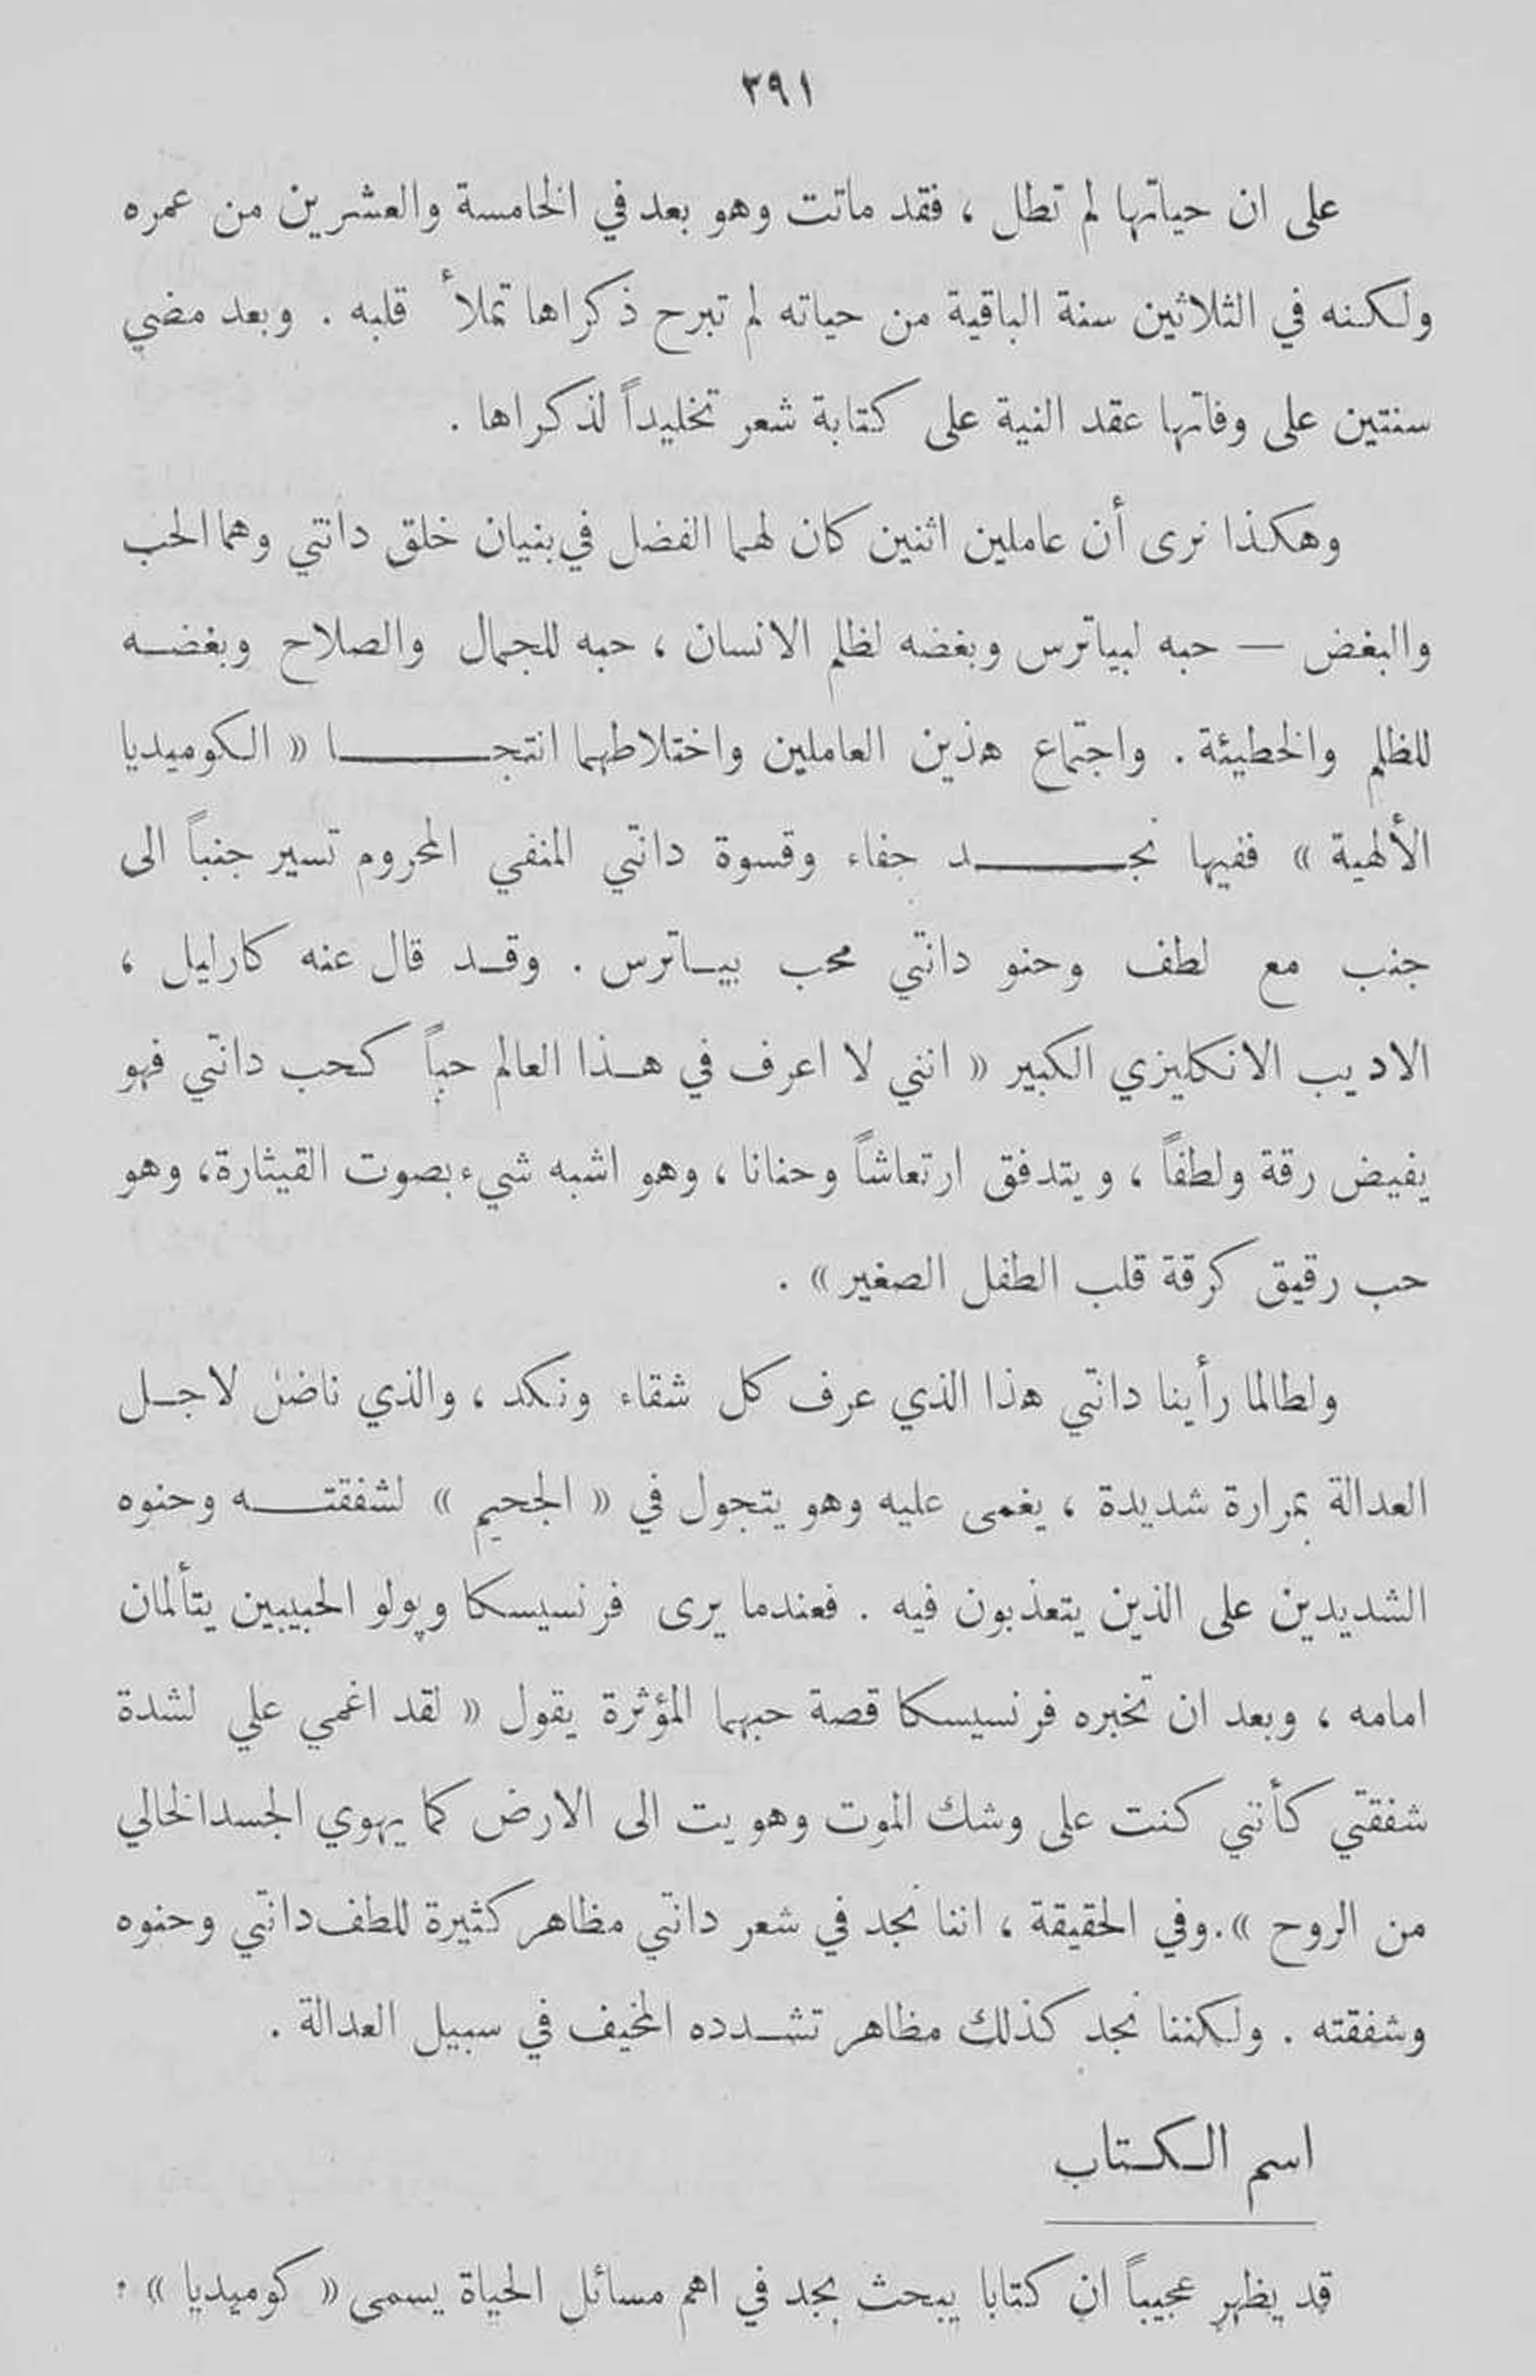 ٣٩١
على ان حياتها لم تطل ، فقد ماتت وهو بعد في الخامسة والعشرين من عمره
ولكنه في الثلاثين سنة الباقية من حياته لم تبرح ذكراها تملأ قلبه . وبعد مضي
سنتين على وفاتها عقد النية على كتابة شعر تخليداً لذكراها .
وهكذا نرى أن عاملين اثنين كان لهما الفضل في بنيان خلق دانتي وهما الحب
والبغض — حبه لبياترس وبغضه لظلم الانسان ، حبه للجمال والصلاح وبغضه
للظلم والخطيئة . واجتماع هذين العاملين واختلاطهما انتجا « الكوميديا
الألهية » ففيها نجد جفاء وقسوة دانتي المنفي المحروم تسير جنباً الى
جنب مع لطف وحنو دانتي محب بياترس . وقد قال عنه كارليل ،
الاديب الانكليزي الكبير « انني لا اعرف في هذا العالم حباً كحب دانتي فهو
يفيض رقة ولطفاً ، ويتدفق ارتعاشاً وحنانا ، وهو اشبه شيء بصوت القيثارة ، وهو
حب رقيق كرقة قلب الطفل الصغير » .
ولطالما رأينا دانتي هذا الذي عرف كل شقاء ونكد ، والذي ناضل لاجل
العدالة بمرارة شديدة ، يغمى عليه وهو يتجول في « الجحيم » لشفقته وحنوه
الشديدين على الذين يتعذبون فيه . فعندما يرى فرنسيسكا وپولو الحبيبين يتألمان
امامه ، وبعد ان تخبره فرنسيسكا قصة حبهما المؤثرة يقول « لقد اغمي علي لشدة
شفقتي كأنني كنت على وشك الموت وهويت الى الارض كما يهوي الجسد الخالي
من الروح » . وفي الحقيقة ، اننا نجد في شعر دانتي مظاهر كثيرة للطف دانتي وحنوه
وشفقته . ولكننا نجد كذلك مظاهر تشدده المخيف في سبيل العدالة .
اسم الكتاب
قد يظهر عجيباً ان كتابا يبحث بجد في اهم مسائل الحياة يسمى « كوميديا » :